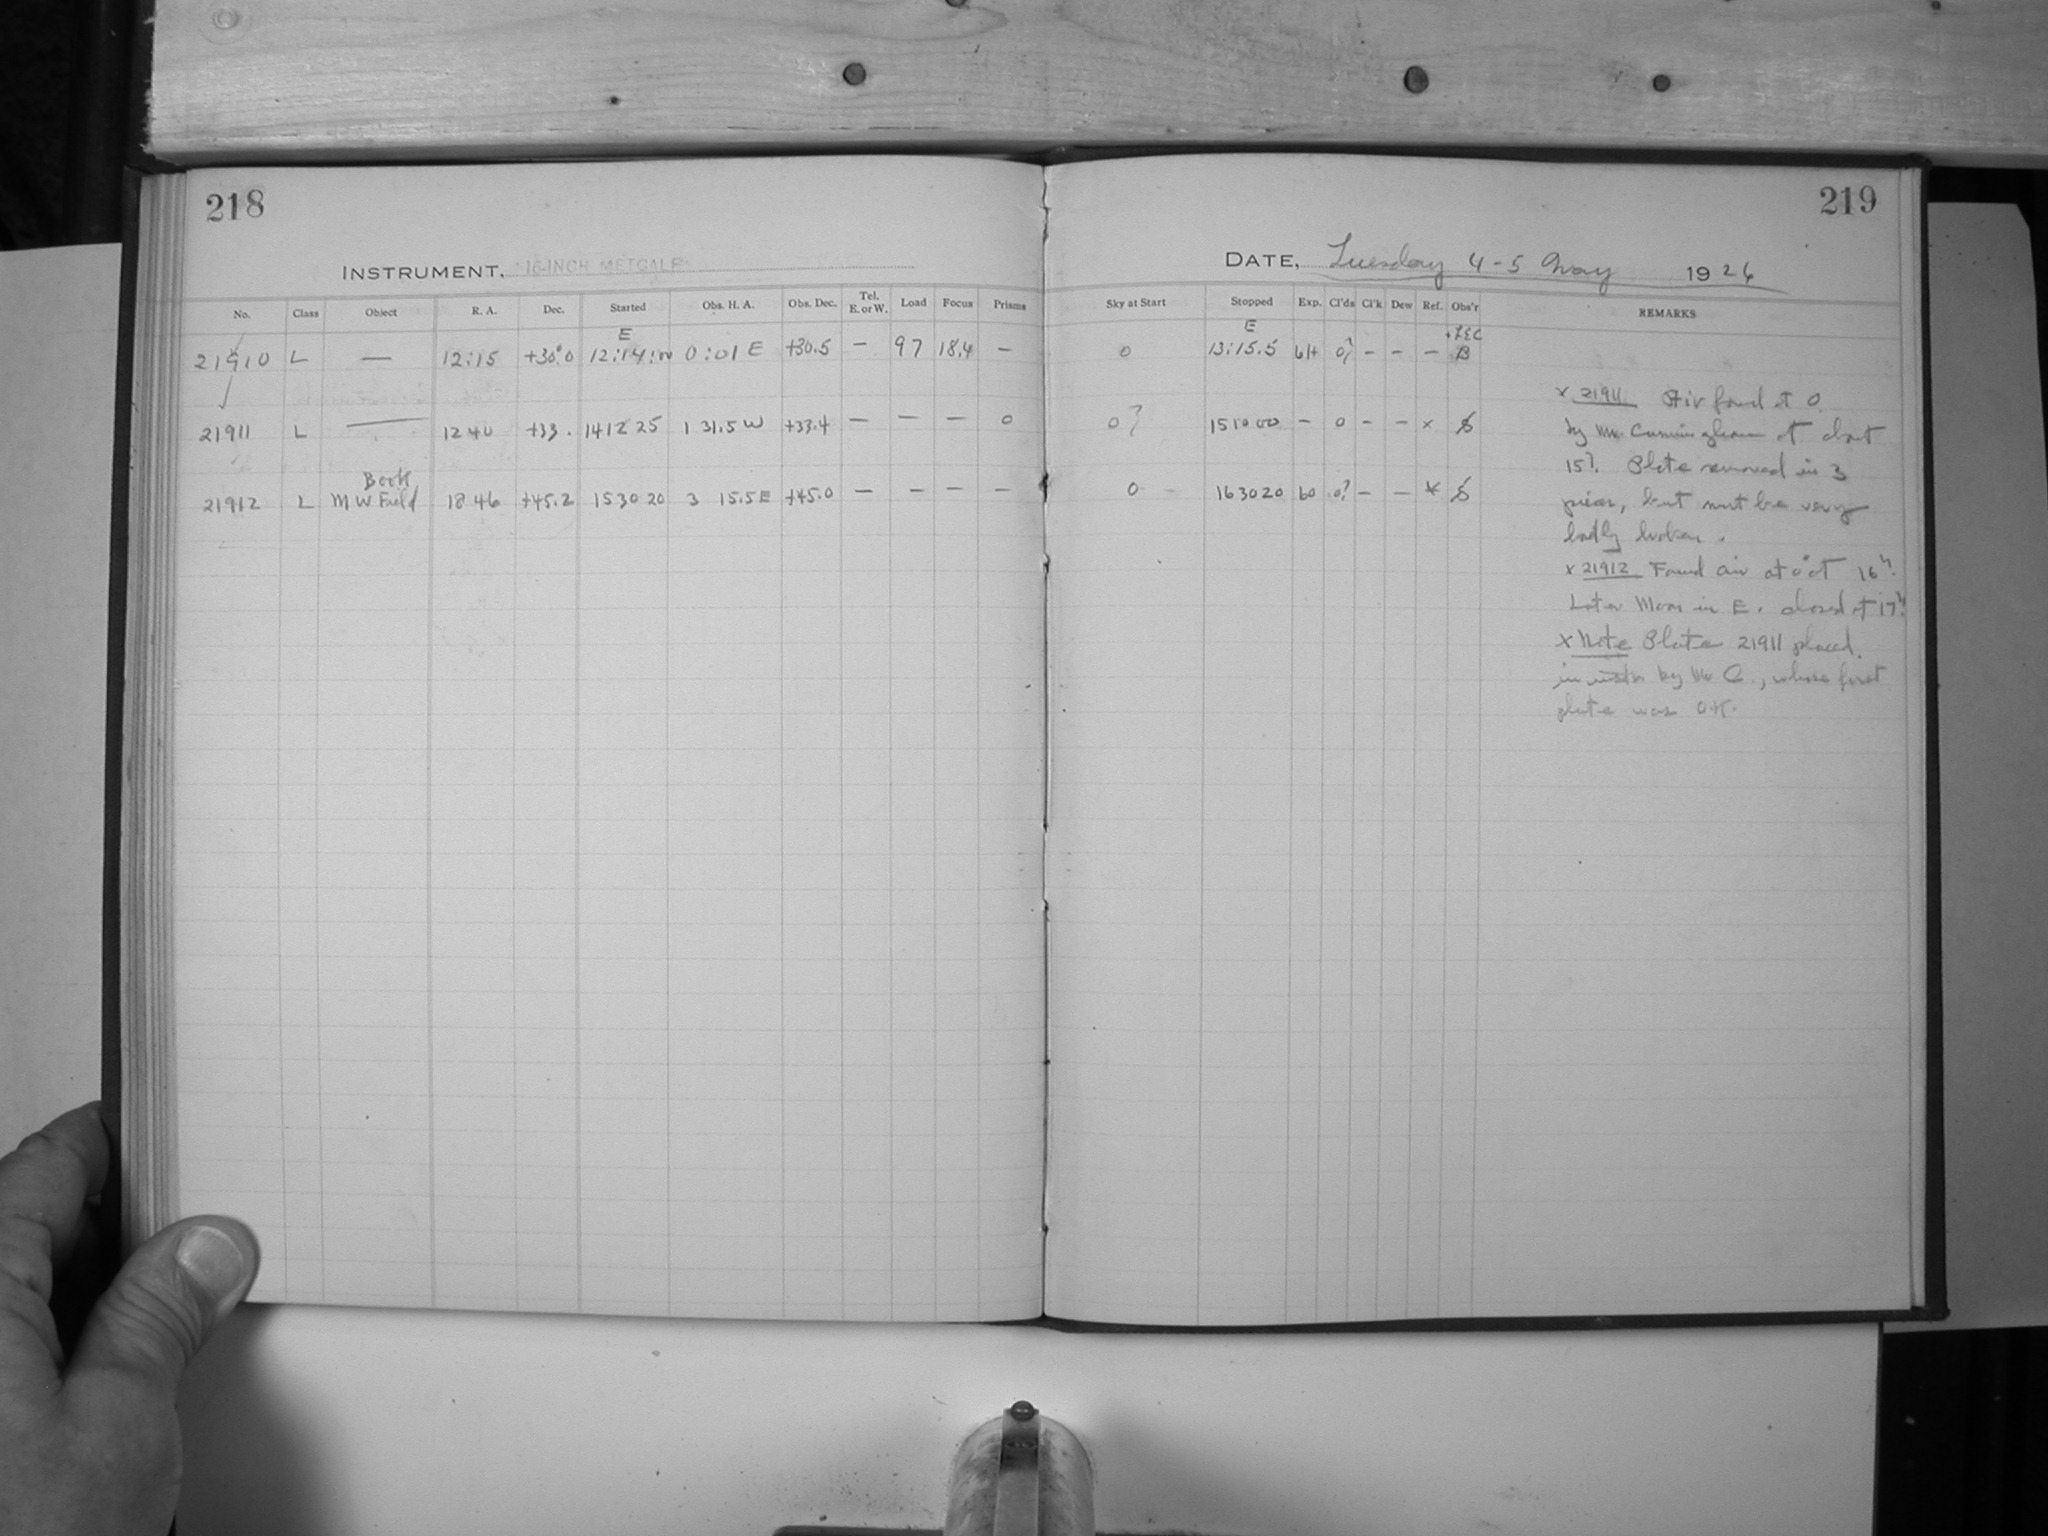 218
INSTRUMENT, 16-INCH METCALF
No. Class Object R. A. Dec. Started Obs. H. A. Obs. Dec. Tel. E. or W. Load Focus Prisms
E
21910 L — 12:15 +30°0 12:14:00 0:01 E +30.5 — 97 18.4 —
21911 L — 12 40 +33. 14 12 25 1 31.5 W +33.4 — — — 0
Book
21912 L M W Field 18 46 +45.2 15 30 20 3 15.5 E +45.0 — — — —
219
DATE, Tuesday 4-5 May 1926
Sky at Start Stopped Exp. Cl'ds Cl'k Dew Ref. Obs'r REMARKS
E
0 13:15.5 61+ 0? — — — B
0? 15 10 00 — 0 — — x S
0 16 30 20 60 0? — — x S
x 21911 found at 0
by Mr. Cunningham at about
15?. Plate removed in 3
pieces, but must be very
badly broken.
x 21912 Found air at 0° at 16h.
Later Moon in E. closed at 17h.
x Note Plate 21911 placed
in by Mr C., whose first
plate was O.K.